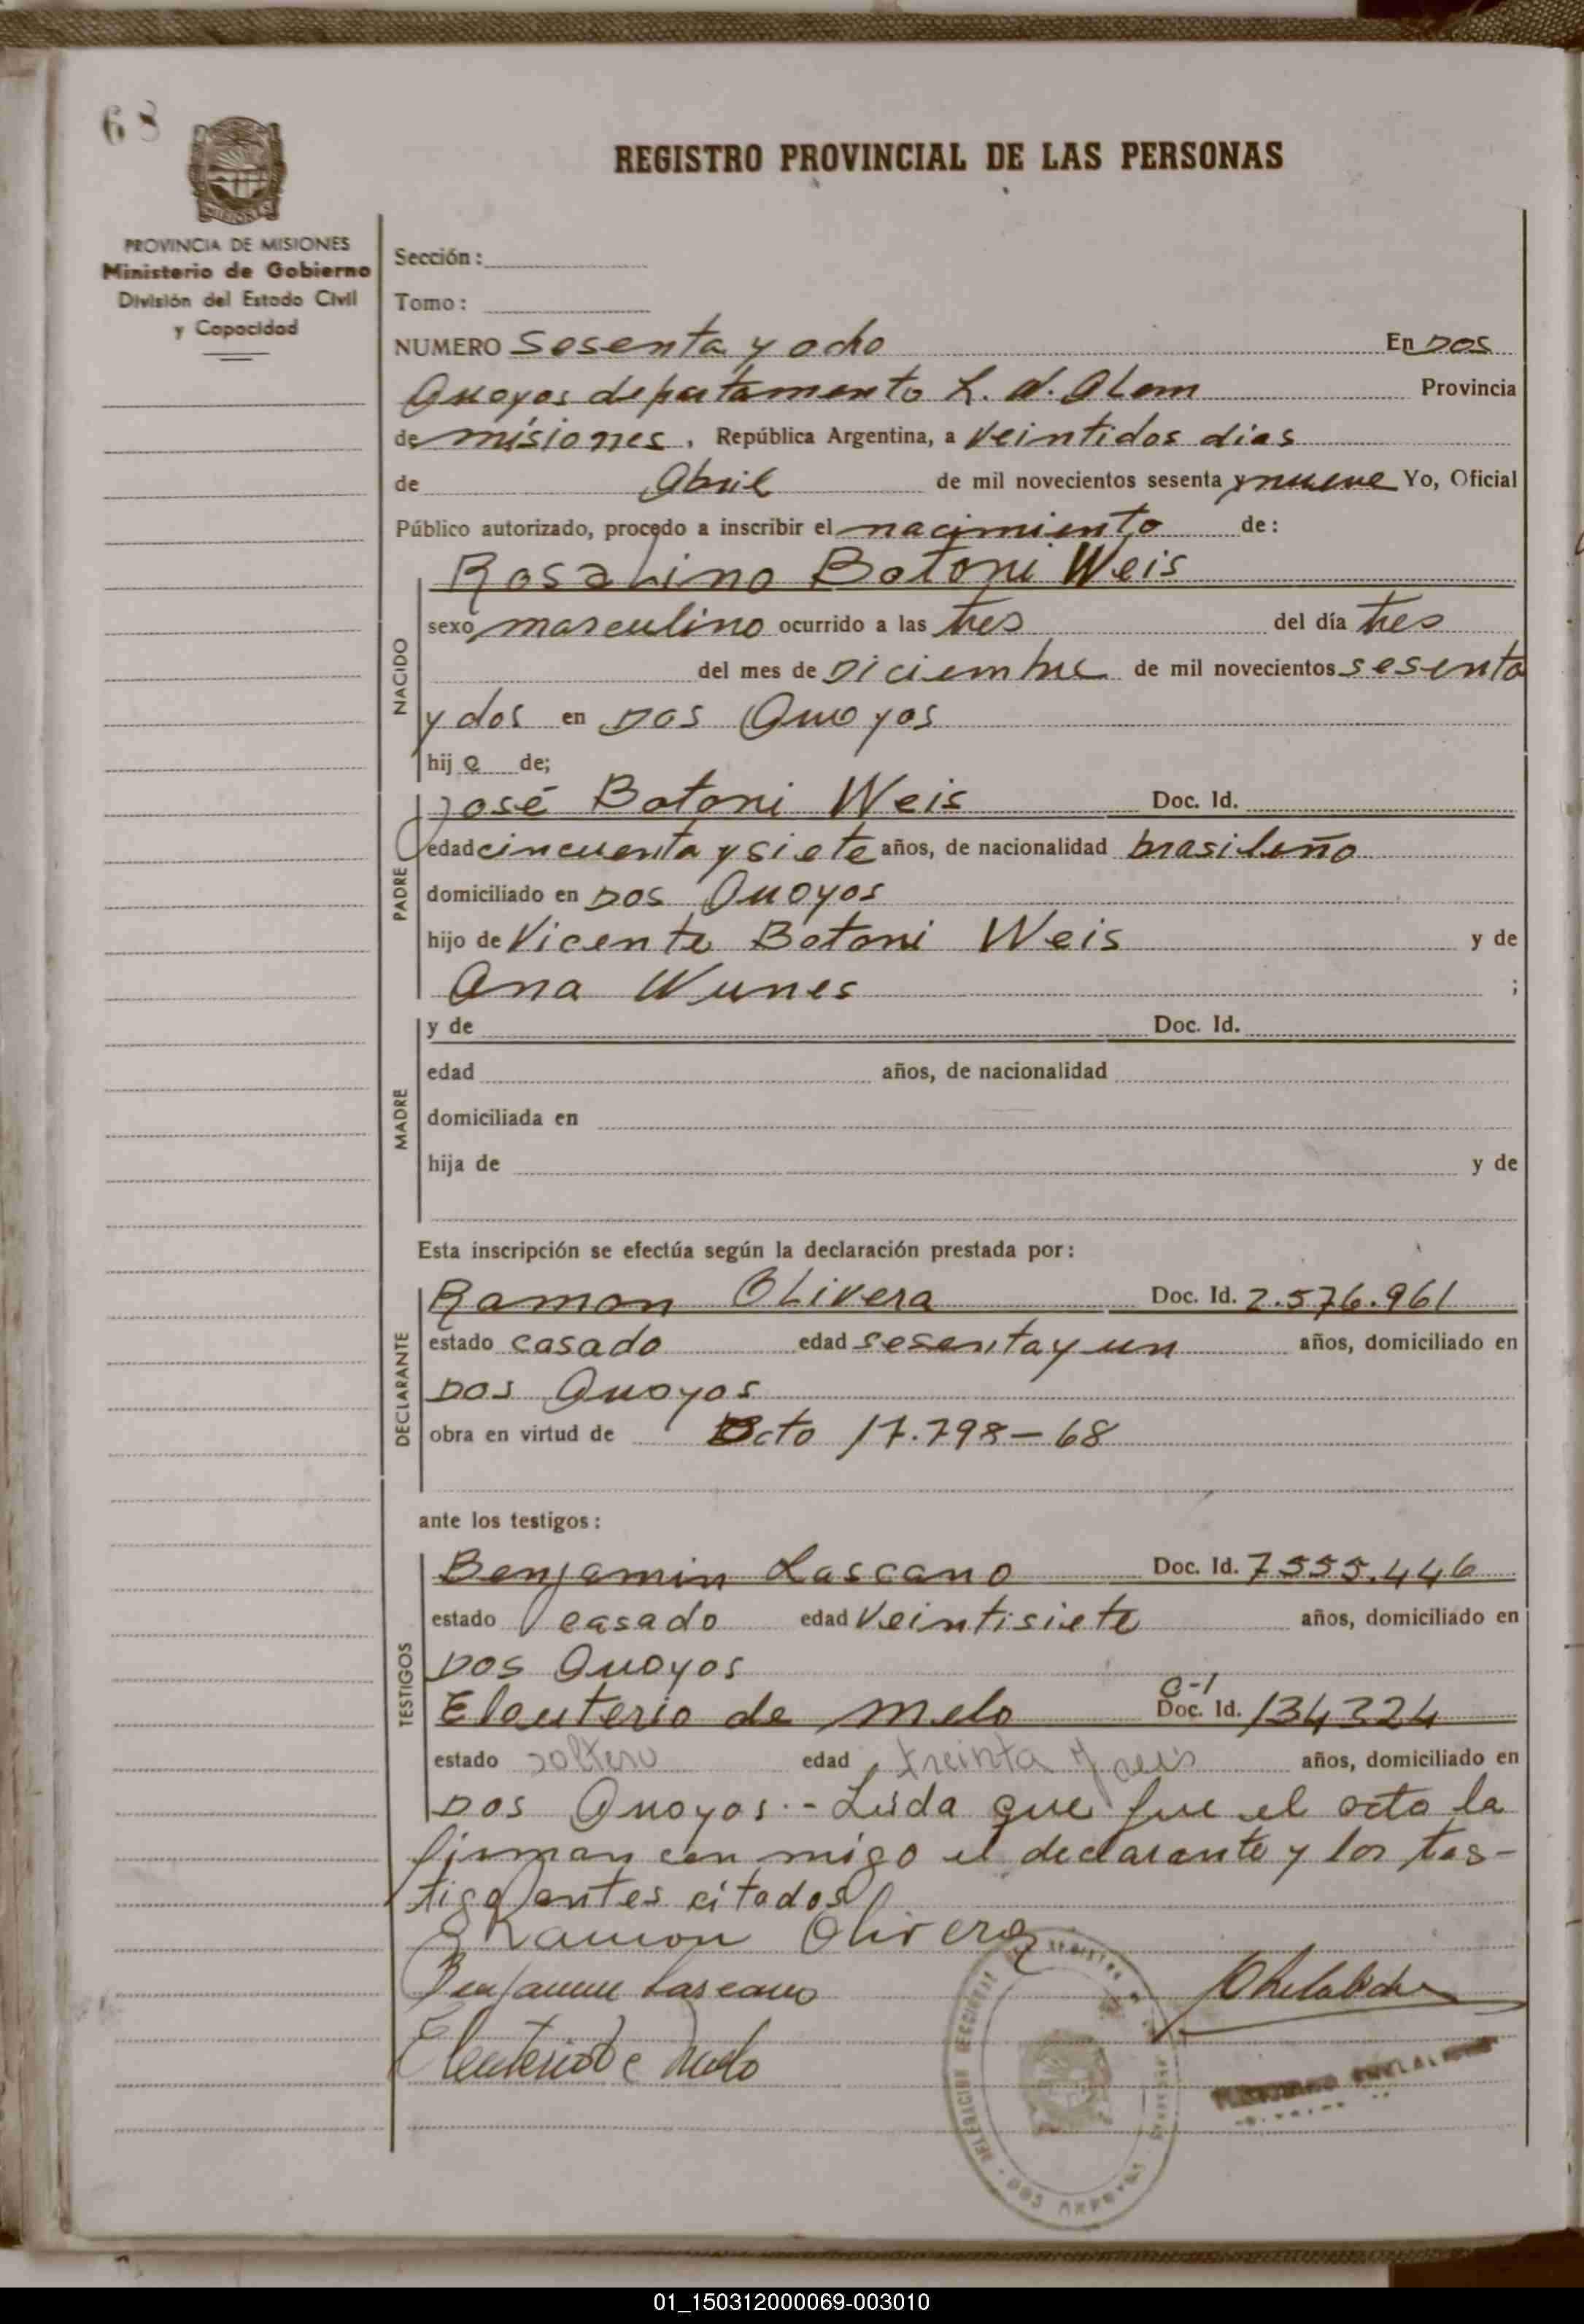 68
REGISTRO PROVINCIAL DE LAS PERSONAS
PROVINCIA DE MISIONES
Ministerio de Gobierno
División del Estado Civil
y Capacidad
Sección:
Tomo:
NUMERO Sesenta y ocho En Dos
Arroyos departamento L. N. Alem Provincia
de misiones, República Argentina, a Veintidos dias
de Abril de mil novecientos sesenta y nueve Yo, Oficial
Público autorizado, procedo a inscribir el nacimiento de:
Rosalino Botoni Weis
NACIDO
sexo masculino ocurrido a las tres del día tres
del mes de Diciembre de mil novecientos sesenta
y dos en Dos Arroyos
hijo de;
José Botoni Weis Doc. Id.
PADRE
edad cincuenta y siete años, de nacionalidad brasileño
domiciliado en Dos Arroyos
hijo de Vicente Botoni Weis y de
Ana Nunes ;
MADRE
y de Doc. Id.
edad años, de nacionalidad
domiciliada en
hija de y de
Esta inscripción se efectúa según la declaración prestada por:
DECLARANTE
Ramon Olivera Doc. Id. 2.576.961
estado casado edad sesenta y un años, domiciliado en
Dos Arroyos
obra en virtud de Dcto 17.798-68
ante los testigos:
TESTIGOS
Benjamin Lascano Doc. Id. 7555.446
estado casado edad Veintisiete años, domiciliado en
Dos Arroyos
C-1
Eleuterio de Melo Doc. Id. 134324
estado soltero edad treinta y seis años, domiciliado en
Dos Arroyos.- Leida que fue el acta la
firman con migo el declarante y los tes-
tigo antes citados
Ramon Olivera
Benjamin Lascano
Eleuterio De Melo
DOS ARROYOS
01_150312000069-003010